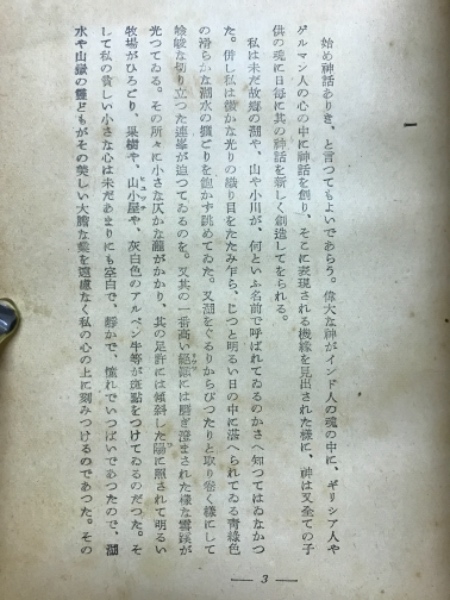 一
始め神話ありき、と言つてもよいであらう。偉大な神がインド人の魂の中に、ギリシア人や
ゲルマン人の心の中に神話を創り、そこに表現される機縁を見出された樣に、神は又全ての子
供の魂に日每に其の神話を新しく創造してをられる。
私は未だ故鄕の湖や、山や小川が、何といふ名前で呼ばれてゐるのかさへ知つてはゐなかつ
た。併し私は微かな光りの織り目をたたみ乍ら、じつと明るい日の中に湛へられてゐる靑綠色
の滑らかな湖水の擴ごりを飽かず眺めてゐた。又湖をぐるりからぴつたりと取り卷く樣にして
嶮峻な切り立つた連峯が迫つてゐるのを。又其の一番高い には磨ぎ澄まされた樣な雪溪が
光つてゐる。その所々に小さな仄かな瀧がかかり、其の足許には傾斜した陽に照されて明るい
牧場がひろごり、果樹や、山小屋や、灰白色のアルペン牛等が斑點をつけてゐるのだつた。そ
ヒュッテ
して私の貧しい小さな心は未だあまりにも空白で、靜かで、憧れでいつぱいであつたので、湖
水や山嶽の靈どもがその美しい大膽な を遠慮なく私の心の上に刻みつけるのであつた。その
— 3 —